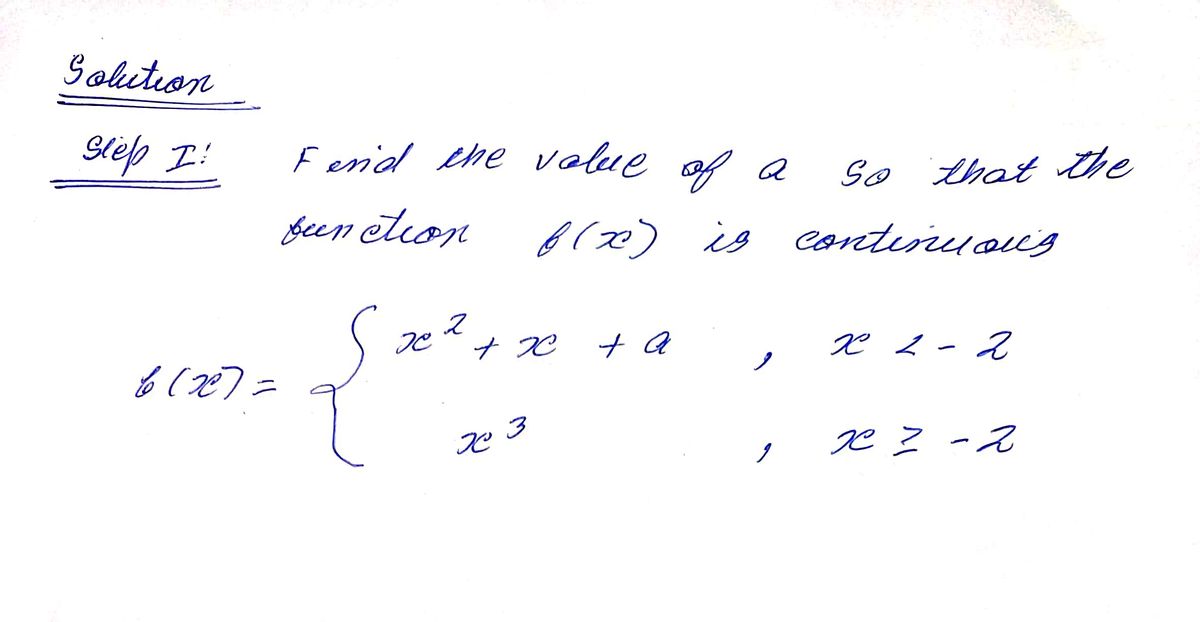 Solution
Step I: Find the value of a so that the
function f(x) is continuous
f(x) = { x² + x + a , x < -2
x³ , x ≥ -2